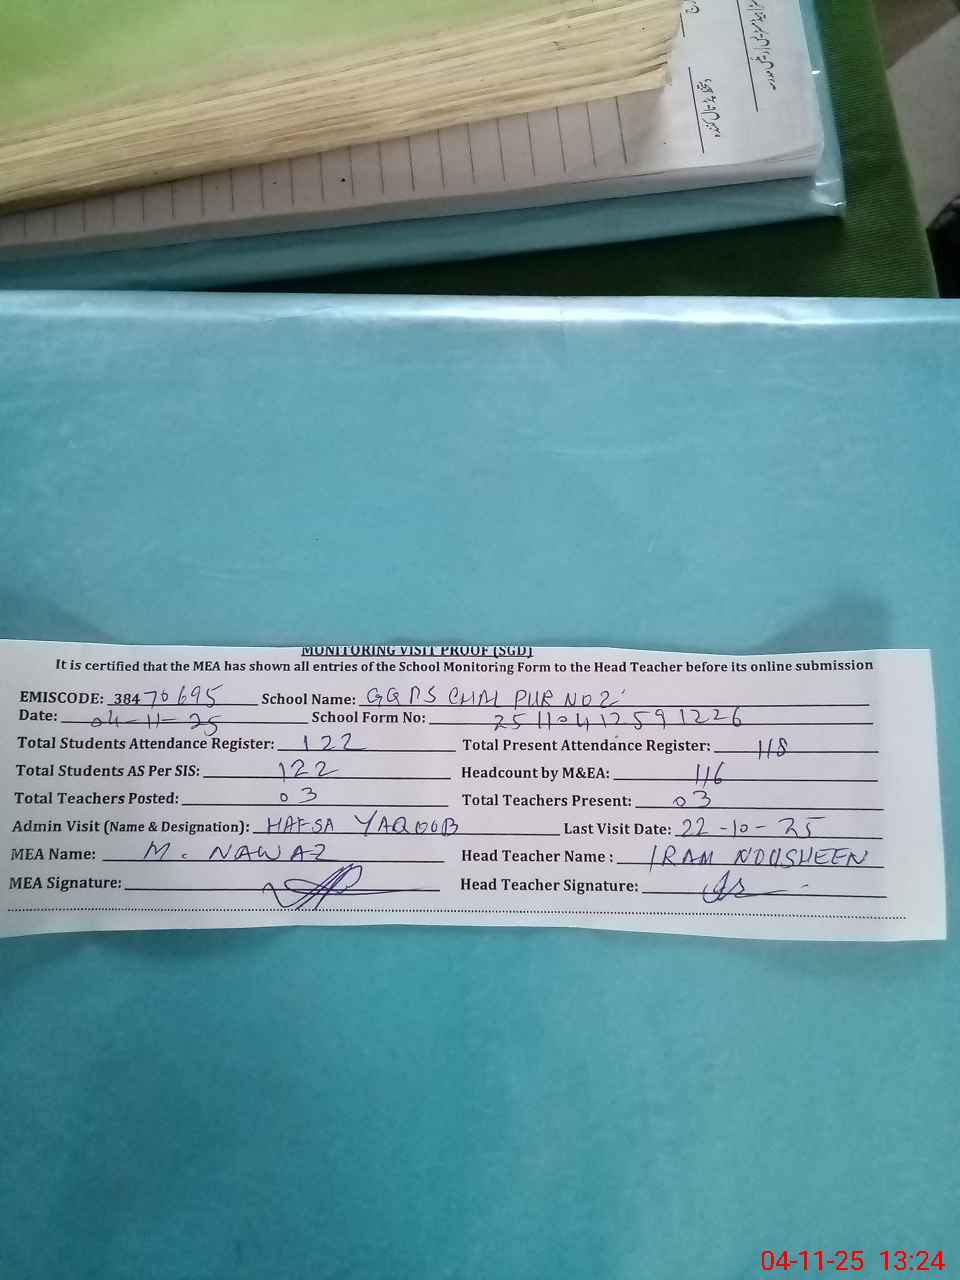 دستخط پڑتال کنندہ
MONITORING VISIT PROOF (SGD)
It is certified that the MEA has shown all entries of the School Monitoring Form to the Head Teacher before its online submission
EMISCODE: 38470695 School Name: GGPS CHAL PUR NO 2
Date: 04-11-25 School Form No: 25110412591226
Total Students Attendance Register: 122 Total Present Attendance Register: 118
Total Students AS Per SIS: 122 Headcount by M&EA: 116
Total Teachers Posted: 03 Total Teachers Present: 03
Admin Visit (Name & Designation): HAFSA YAQOOB Last Visit Date: 22-10-25
MEA Name: M. NAWAZ Head Teacher Name : IRAM NOUSHEEN
MEA Signature: Head Teacher Signature:
04-11-25 13:24